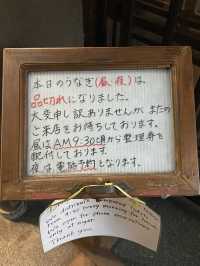 本日のうなぎ(昼、夜)は、
品切れになりました。
大変申し訳ありませんが、またの
ご来店をお待ちしております。
昼はAM9:30頃から整理券を
配付しております。
夜は電話予約となります。
for phone reservations
Only at night.
Thank you.